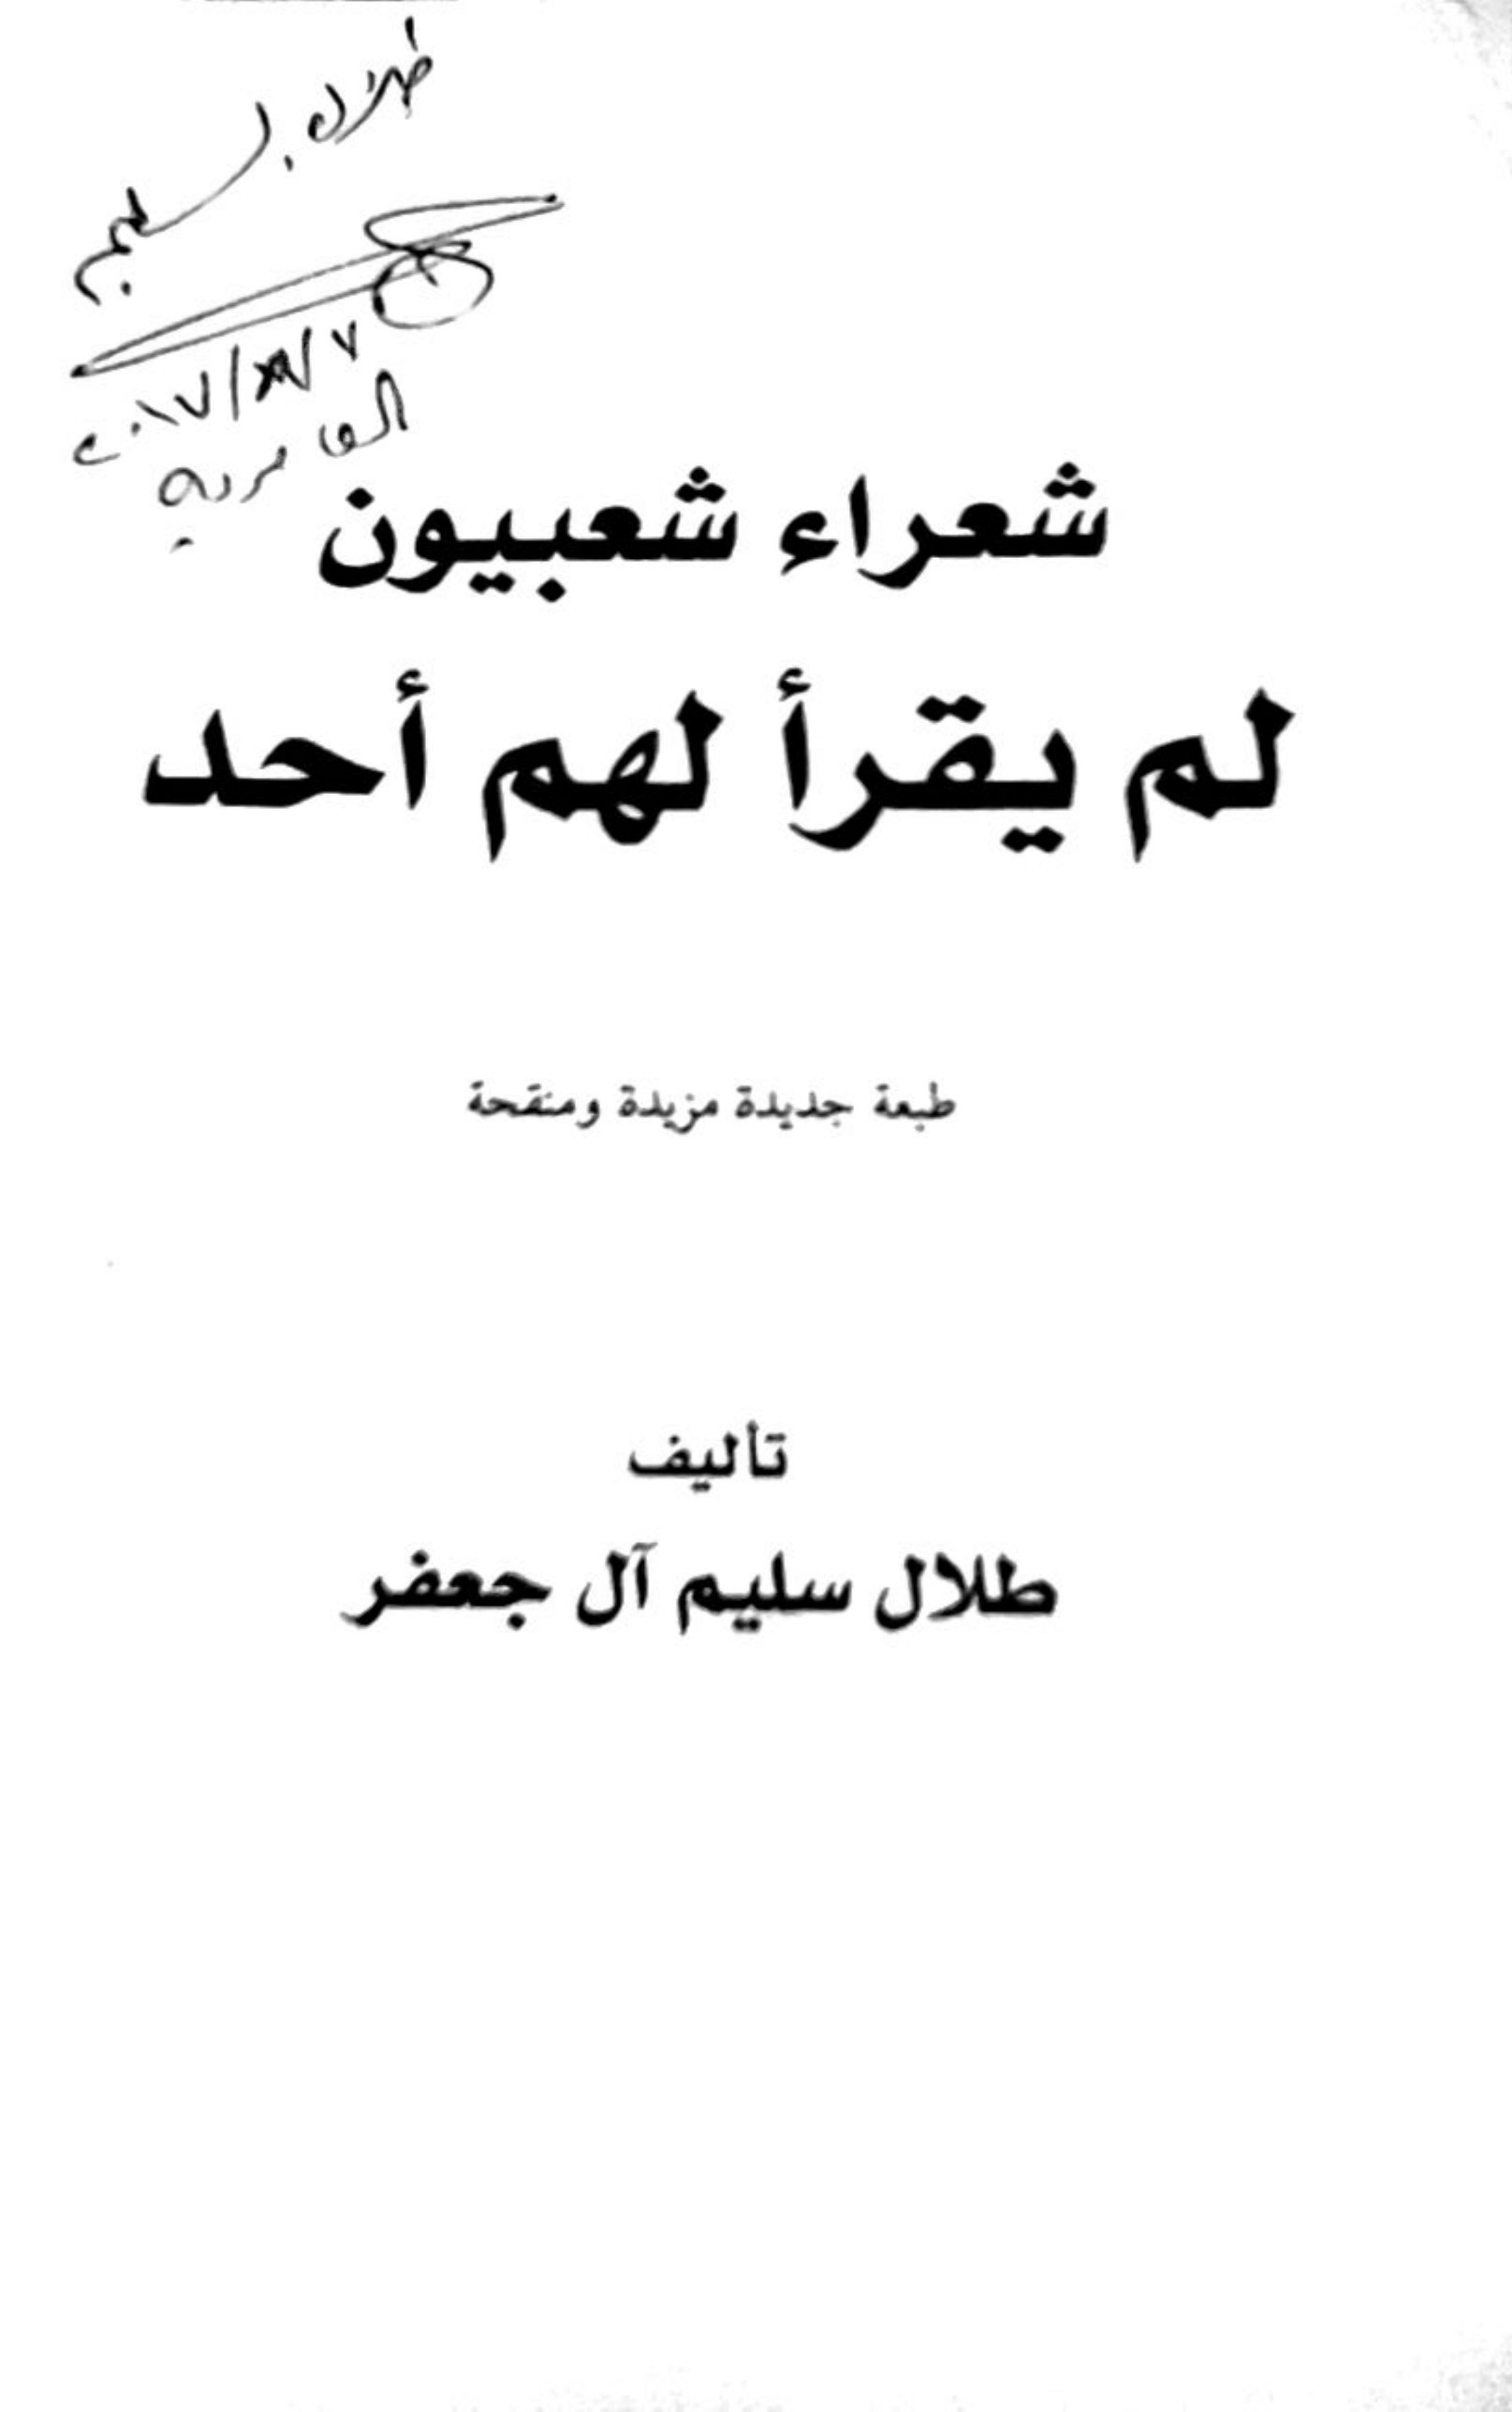 طلال سليم
شعراء شعبيون
لم يقرأ لهم أحد
طبعة جديدة مزيدة ومنقحة
تأليف
طلال سليم آل جعفر